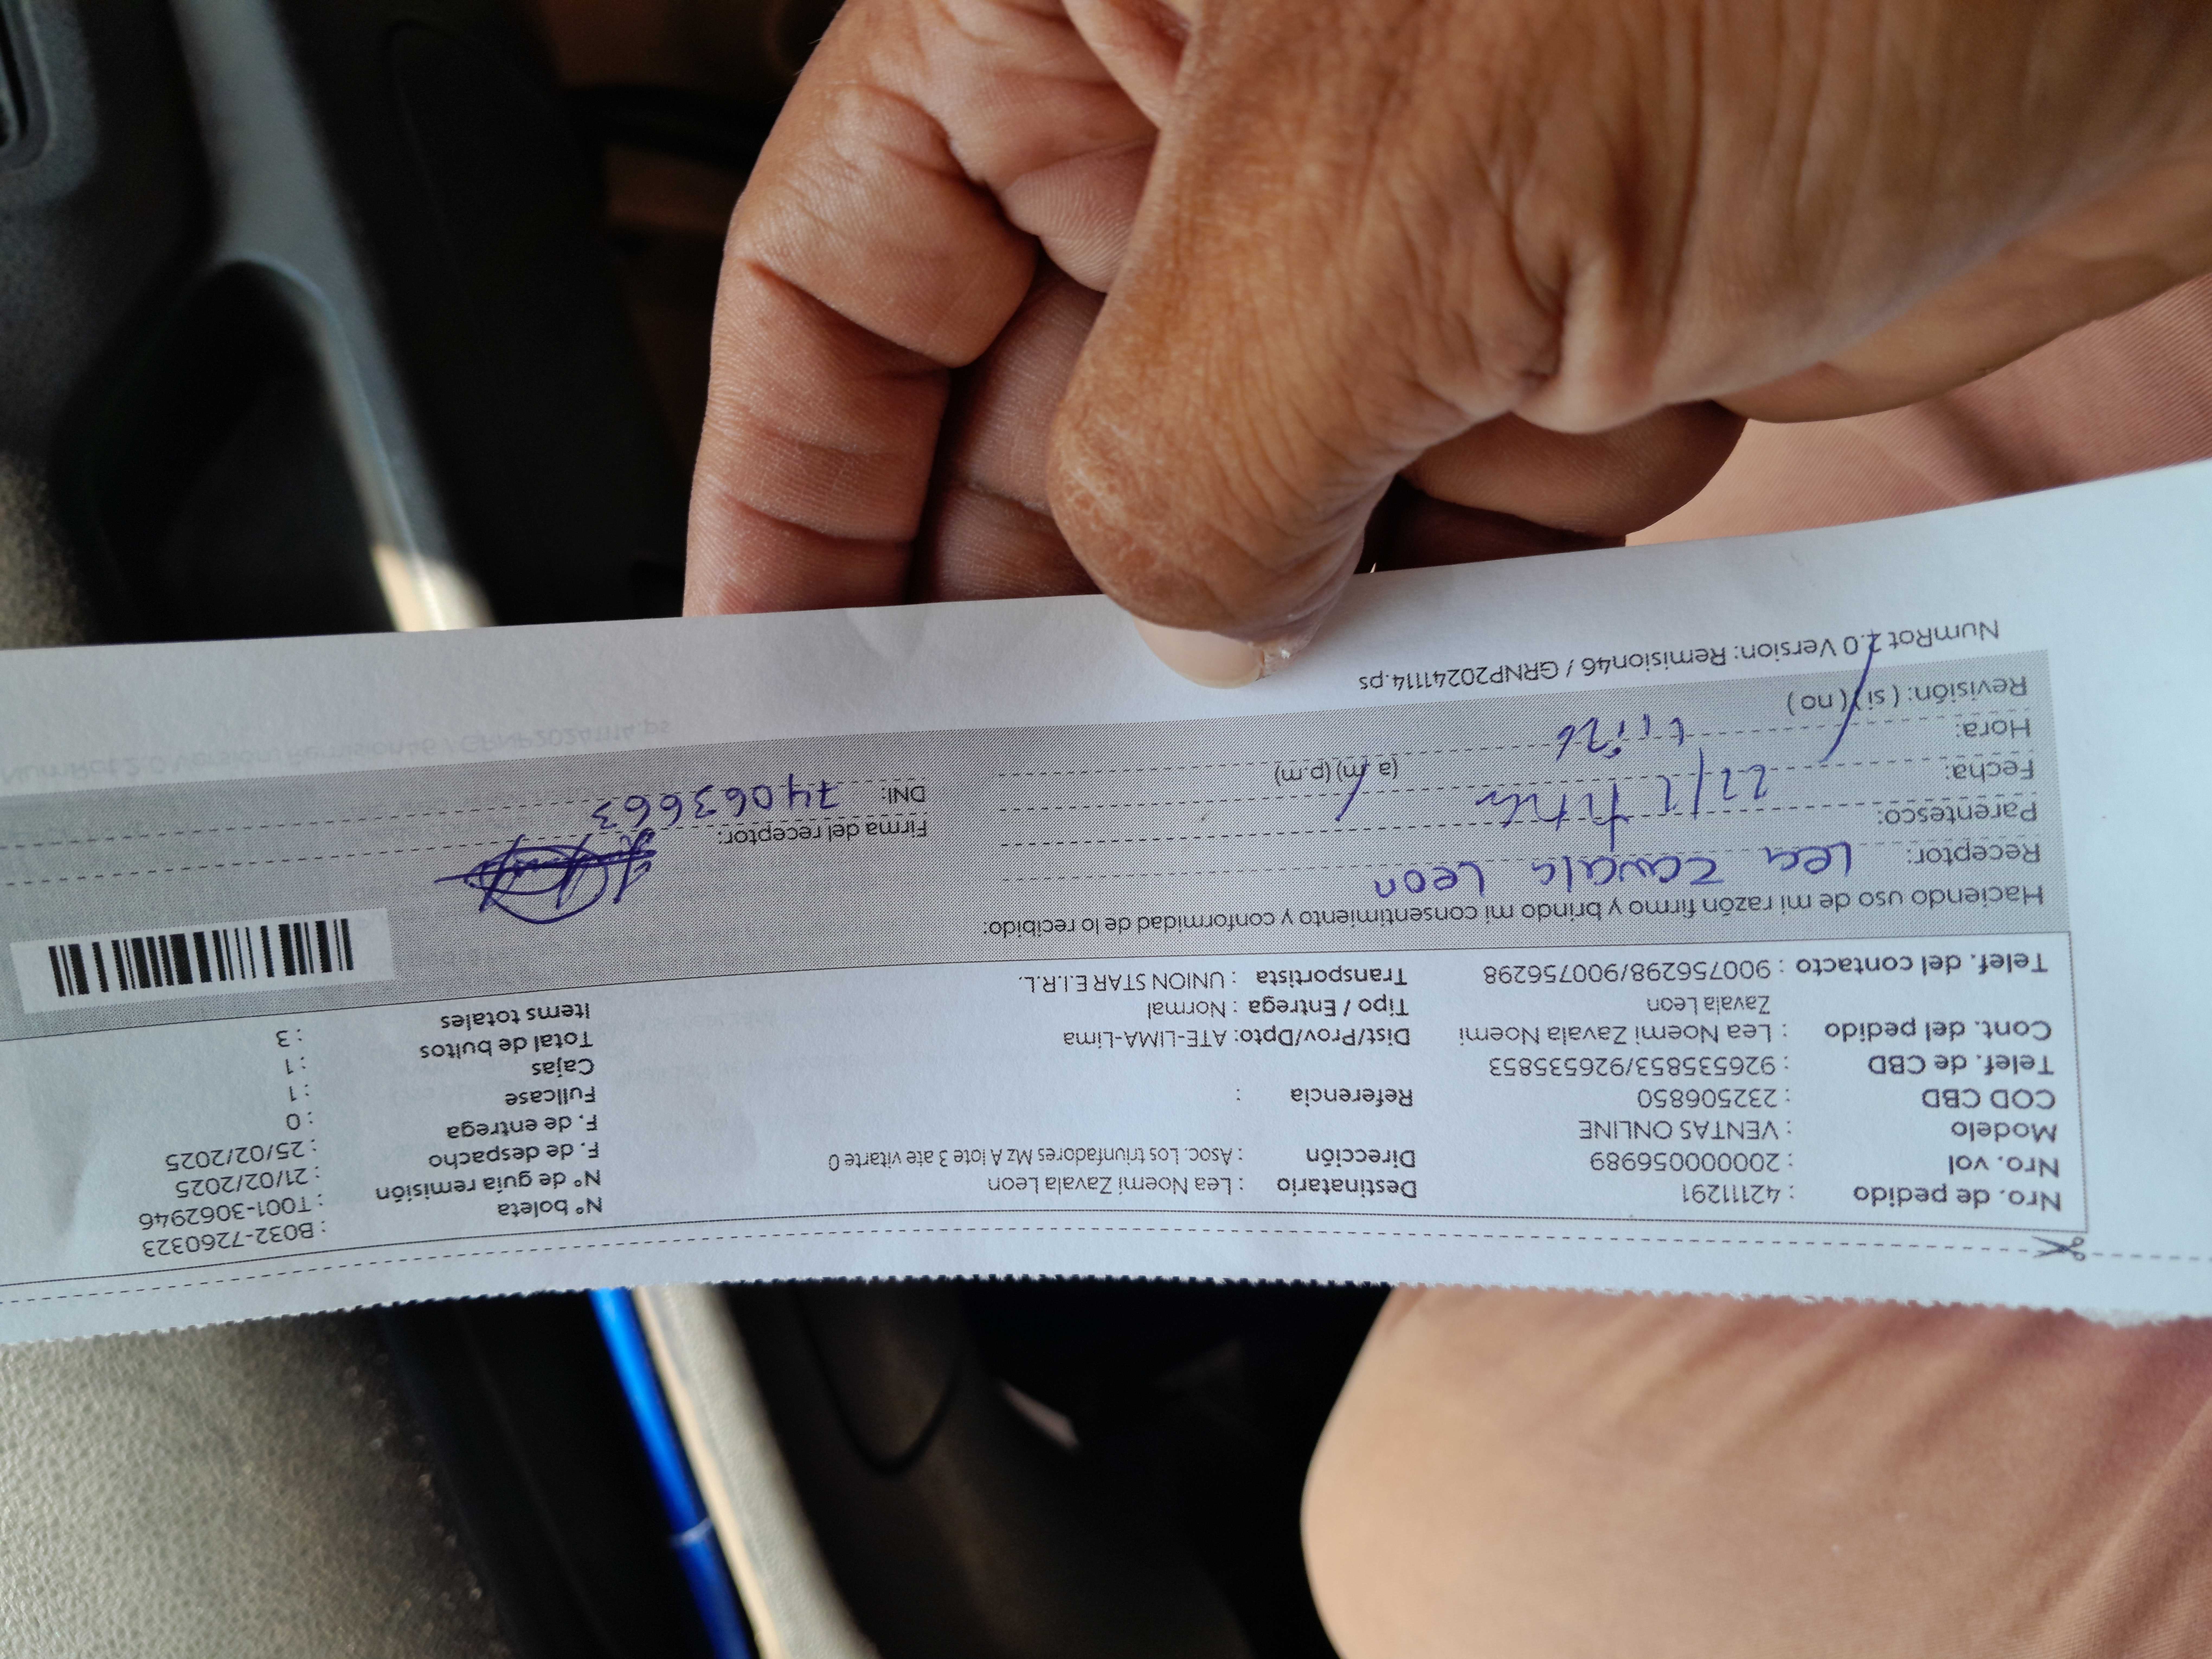 Nro. de pedido : 42111291
Nro. vol : 20000056989
Modelo : VENTAS ONLINE
COD CBD : 232506850
Telef. de CBD : 926535853/926535853
Cont. del pedido : Lea Noemi Zavala Noemi
Zavala Leon
Telef. del contacto : 900756298/900756298
Destinatario : Lea Noemí Zavala Leon
Dirección : Asoc. Los triunfadores Mz A lote 3 ate vitarte 0
Referencia :
Dist/Prov/Dpto: ATE-LIMA-Lima
Tipo / Entrega : Normal
Transportista : UNION STAR E.I.R.L.
N° boleta : B032-7260323
N° de guía remisión : T001-3062946
F. de despacho : 21/02/2025
F. de entrega : 25/02/2025
Fullcase : 0
Cajas : 1
Total de bultos : 1
Items totales : 3
Haciendo uso de mi razón firmo y brindo mi consentimiento y conformidad de lo recibido:
Receptor: Lea Zavala Leon
Parentesco:
Fecha:
Hora: (a.m) (p.m)
Revisión: ( si ) ( no )
Firma del receptor:
DNI: 74063663
NumRot 2.0 Version: Remision46 / GRNP20241114.ps